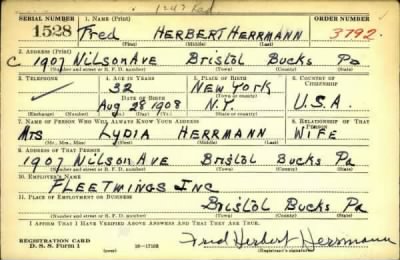 SERIAL NUMBER 1. NAME (Print) ORDER NUMBER
1528 Fred HERBERT HERRMANN 3792
(First) (Middle) (Last)
2. ADDRESS (Print)
C 1907 Wilson Ave Bristol Bucks Pa
(Number and street or R. F. D. number) (Town) (County) (State)
3. TELEPHONE 4. AGE IN YEARS 5. PLACE OF BIRTH 6. COUNTRY OF CITIZENSHIP
32 NEW YORK
DATE OF BIRTH (Town or county)
Aug 28 1908 N.Y. U.S.A.
(Mo.) (Day) (Yr.) (State or country)
7. NAME OF PERSON WHO WILL ALWAYS KNOW YOUR ADDRESS 8. RELATIONSHIP OF THAT PERSON
Mrs LYDIA HERRMANN WIFE
(Mr., Mrs., Miss) (First) (Middle) (Last)
9. ADDRESS OF THAT PERSON
1907 Wilson Ave Bristol Bucks Pa
(Number and street or R. F. D. number) (Town) (County) (State)
10. EMPLOYER'S NAME
FLEETWINGS INC
11. PLACE OF EMPLOYMENT OR BUSINESS
Bristol Bucks Pa
(Number and street or R. F. D. number) (Town) (County) (State)
I AFFIRM THAT I HAVE VERIFIED ABOVE ANSWERS AND THAT THEY ARE TRUE.
REGISTRATION CARD
D. S. S. Form 1 (over) 16-17105 Fred Herbert Herrmann
(Registrant's signature)